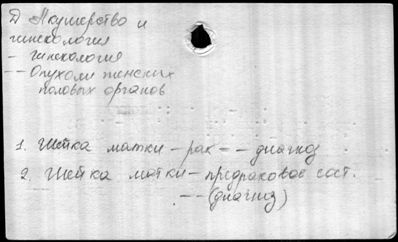 Д Акушерство и
гинекология
- Гинекология
-- Опухоли женских
половых органов
1. Шейка матки - рак - - диагноз
2. Шейка матки - предраковое сост.
-- (диагноз)